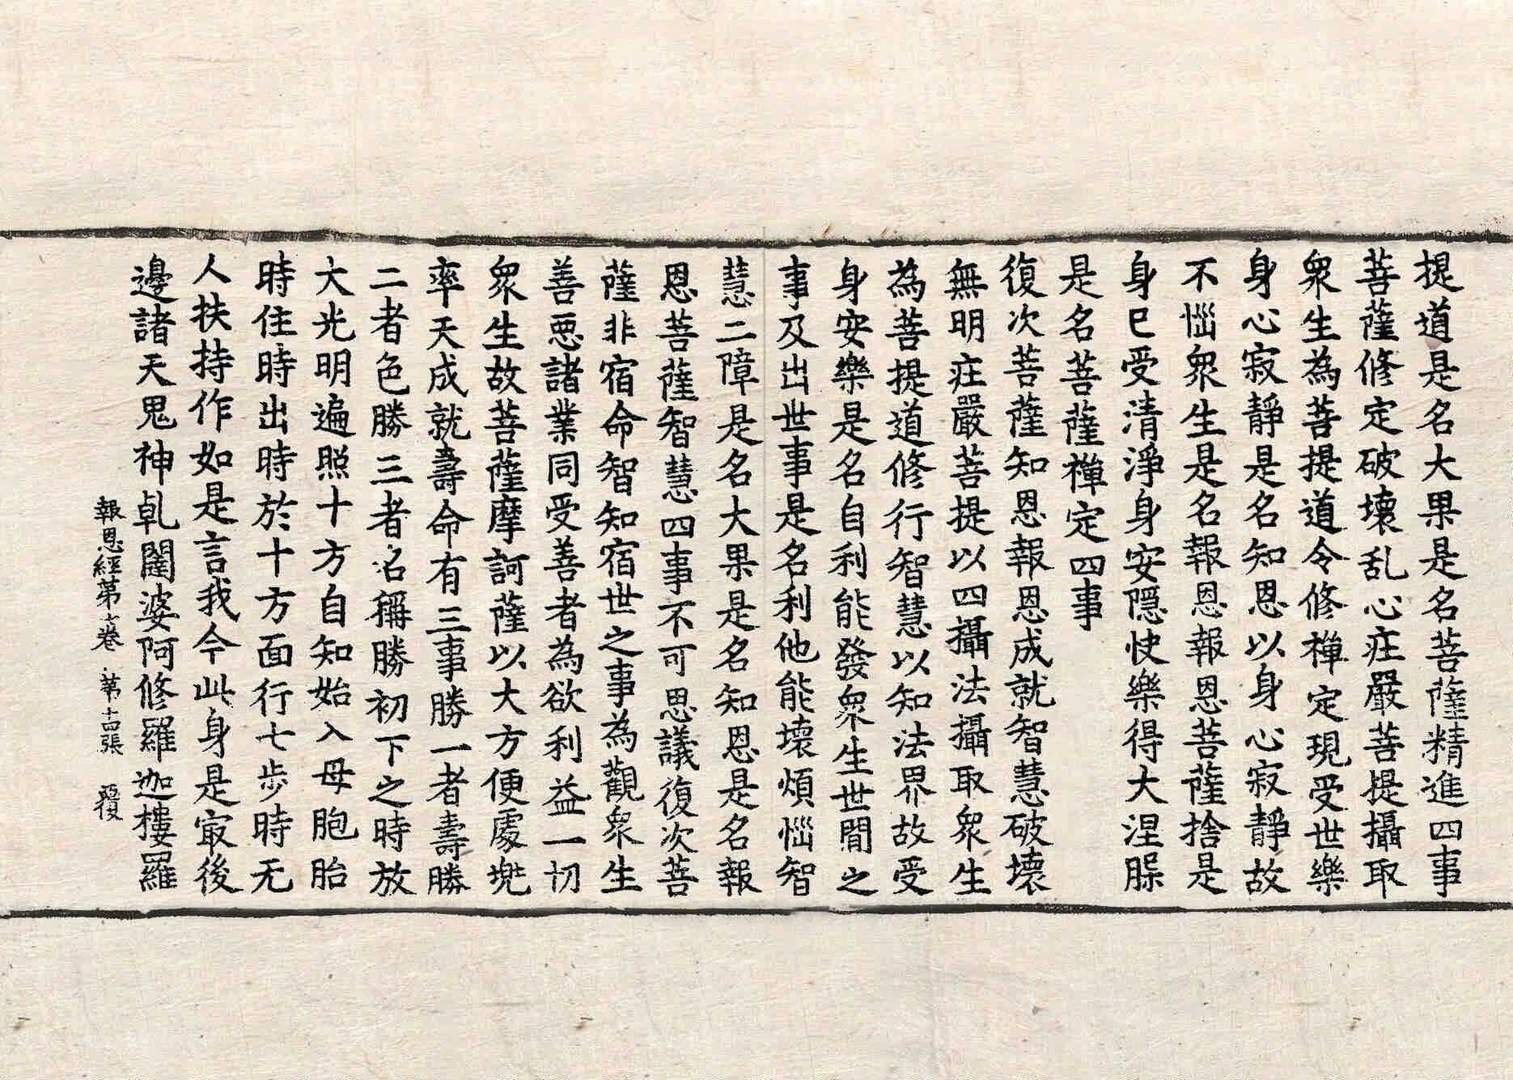 提道是名大果是名菩薩精進四事
菩薩修定破壞乱心庄嚴菩提攝取
衆生為菩提道令修禪定現受世樂
身心寂靜是名知恩以身心寂靜故
不惱衆生是名報恩報恩菩薩捨是
身已受清淨身安隱快樂得大涅槃
是名菩薩禪定四事
復次菩薩知恩報恩成就智慧破壞
無明庄嚴菩提以四攝法攝取衆生
為菩提道修行智慧以知法界故受
身安樂是名自利能發衆生世間之
事及出世事是名利他能壞煩惱智
慧二障是名大果是名知恩是名報
恩菩薩智慧四事不可思議復次菩
薩非宿命智知宿世之事為觀衆生
善惡諸業同受善者為欲利益一切
衆生故菩薩摩訶薩以大方便處兜
率天成就壽命有三事勝一者壽勝
二者色勝三者名稱勝初下之時放
大光明遍照十方自知始入母胞胎
時住時出時於十方面行七步時无
人扶持作如是言我今此身是㝡後
邊諸天鬼神乹闥婆阿修羅迦樓羅
報恩經第七卷 第十四張 覆